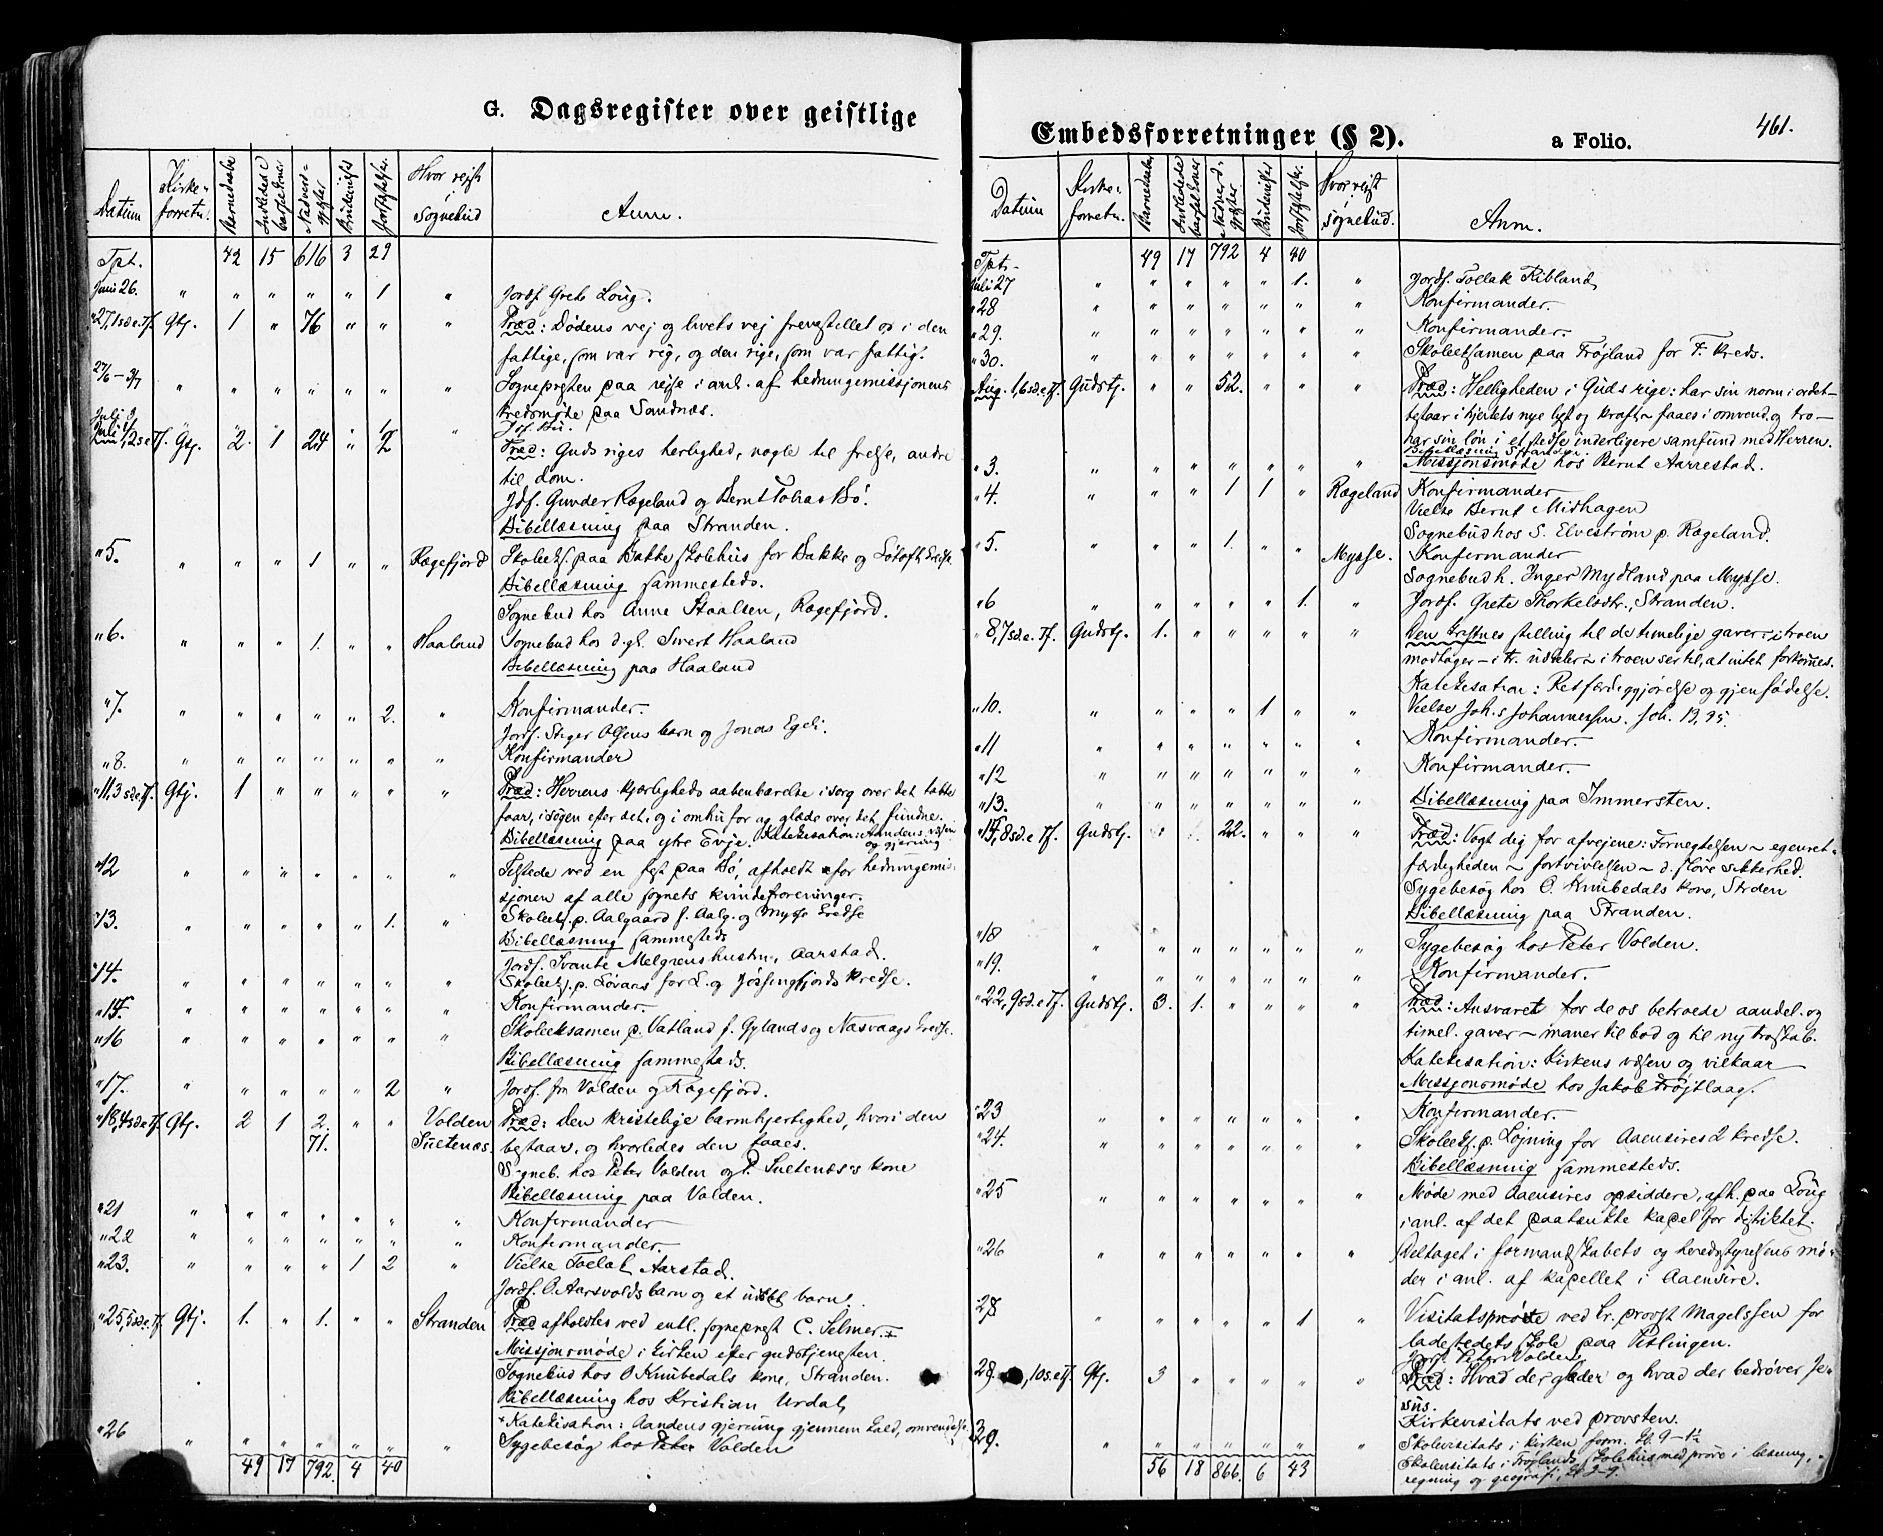 G. Dagsregister over geistlige
Datum Kirke-forretn. Barnedaab Indledede barselkoner Nadverd-gjester Brudevielser Jordfæstelser Hvor rejst i sognebud Anm.
Tpt. 42 15 616 3 29
Juni 26. " " " " " 1 " Jordf. Grete Loug.
" 27, 1 s. e. Tf. Gtj. 1 " 76 " " " Præd: Dødens vej og livets vej fremstillet os i den
fattige, som var rig, og den rige, som var fattig.
27/6 – 3/7 " " " " " " " Sognepresten paa rejse i anl. af hedningemissjonens
kredsmøte paa Sandnæs.
Juli 3
Juli 4, 2 s. e. Tf. Gtj. 2. 1 24 " 2 " Præd: Guds riges herlighed, nogle til frelse, andre
til dom.
Jdf. Gunder Rægeland og Bernt Tobias Bø.
Bibellæsning paa Stranden.
" 5. " " " 1 " " Rægefjord Skoleeks. paa Bakke skolehus for Bakke og Løtoft kredse
Bibellæsning sammesteds.
Sognebud hos Anne Staalsen, Rægefjord.
" 6. " " " 1. " " Haaland Sognebud hos d. gl. Sivert Haaland
Bibellæsning paa Haaland
" 7. " " " " " 2. " Konfirmander.
Jordf. Inger Olsens barn og Jonas Egeli.
" 8. " " " " " " " Konfirmander
" 11, 3 s. e. Tf. Gtj. 1 " " " " " Præd: Herrens kjærligheds aabenbarelse i sorg over det tabte
faar, i søgen efter det, og i omhu for og glæde over det fundne.
Bibellæsning paa ytre Evje. Katekisation: Aandens væsen
og gjerning
" 12 " " " " " " " Tilstede ved en fest paa Bø, afholdt for hedningemis-
sjonen af alle sognets kvindeforeninger.
" 13. " " " " " 1. " Skoleeks. p. Aalgaard f. Aalg. og Mysse kredse
Bibellæsning sammesteds
Jordf. Svante Melgrens hustru, Aarstad.
" 14. " " " " " " " Skoleeks. p. Løvaas for L. og Jøssingfjords kredse.
" 15 " " " " " " " Konfirmander.
" 16 " " " " " " " Skoleeksamen p. Vatland f. Gylands og Næsvaags kredse.
Bibellæsning sammesteds.
" 17. " " " " " 2 " Jordf. fra Valden og Rægefjord.
" 18, 4 s. e. Tf. Gtj. 2 1 2. " " Valden Præd: Den kristelige barmhjertighed, hvori den
71. Suetenæs. bestaar, og hvorledes den faaes.
Sogneb. hos Peter Valden og P. Suetenæs's kone
Bibellæsning paa Valden.
" 21 " " " " " " " Konfirmander
" 22 " " " " " " " Konfirmander.
" 23. " " " " 1 2 " Vielse Toelak Aarstad.
Jordf. O. Aarsvolds barn og et udøbt barn.
" 25, 5 s. e. Tf. Gtj. 1. " 1. " " Stranden Præd afholdtes ved entl. sogneprest C. Selmer. +
Missjonsmøde i kirken efter gudstjenesten.
Sognebud hos O. Knubedals kone, Stranden.
Bibellæsning hos Kristian Urdal
+ Katekisation: Aandens gjerning gjennem kald, omvendelse
" 26 " " " " " " " Sygebesøg hos Peter Valden
49 17 792. 4 40
Embedsforretninger (§ 2). a Folio. 461.
Datum Kirke-forretn. Barnedaab Indledede barselkoner Nadverd-gjester Brudevielser Jordfæstelser Hvor rejst i sognebud. Anm.
Tpt. 49 17 792 4 40
Juli 27 " " " " " 1. " Jordf. Tollak Kibland
" 28 " " " " " " " Konfirmander.
" 29. " " " " " " " Konfirmander.
" 30. " " " " " " " Skoleeksamen paa Frøjland for F. kreds.
Aug. 1, 6 s. e. Tf. Gudstj. " " 52. " " " Præd: Helligheden i Guds rige: har sin norm i ordet –
bestaar i hjertets nye lyst og kraft – faaes i omvend. og tro –
har sin løn i et stedse inderligere samfund med Herren.
Bibellæsning Stranden.
" 3. " " " " " " " Missjonsmøde hos Bernt Aarrestad.
" 4. " " " 1 1 " Rægeland Konfirmander
Vielse Bernt Midhagen
Sognebud hos S. Elvestrøm p. Rægeland.
" 5. " " " 1. " " Mysse. Konfirmander
Sognebud h. Inger Mydland paa Mysse.
" 6 " " " " " 1. " Jordf. Grete Thorkelsdtr., Stranden.
" 8, 7 s. e. Tf. Gudstj. 1. " " " " " Den kristnes stilling til de timelige gaver – i troen
modtager – i tr. uddeler – i troen ser til, at intet forkomes.
Katekisation: Retfærdiggjørelse og gjenfødelse.
" 10. " " " " 1 " " Vielse Joh. s Johannessen. Joh. 19, 95.
" 11 " " " " " " " Konfirmander.
" 12 " " " " " " " Konfirmander.
" 13. " " " " " " " Bibellæsning paa Immersten.
" 15, 8 s. e. Tf. Gudstj. " " 22. " " " Præd: Vogt dig for afvejene: Fornegtelsen – egenret-
færdigheden – fortvivlelsen – d. sløve sikkerhed.
Sygebesøg hos O. Knubedals kone, Strden
Bibellæsning paa Stranden.
" 18 " " " " " " " Sygebesøg hos Peter Valden.
" 19. " " " " " " " Konfirmander.
" 22, 9 s. e. Tf. Gudstj. 3. 1. " " " " Præd: Ansvaret for de os betroede aandel. og
timel. gaver – maner til bod og til ny troskab.
Katekisation: Kirkens væsen og vilkaar
Missjonsmøde hos Jakob Frøjtlaag.
" 23 " " " " " " " Konfirmander.
" 24. " " " " " " " Skoleeks. p. Løjning for Aaensires 2 kredse.
Bibellæsning sammesteds.
" 25 " " " " " " " Møde med Aaensires opsiddere, afh. paa Loug
i anl. af det paatænkte kapel for distriktet.
" 26 " " " " " " " Deltaget i formandskabets og heredsstyrelsens mø-
der i anl. af kapellet i Aaensire.
" 28 " " " " " 1 " Visitatsprøve ved hr. provst Magelssen for
ladestedets skole paa Pitlingen.
Jordf. Peter Valden
29., 10 s. e. Tf. Gtj. 3 " " " " " Præd: Hvad der glæder og hvad der bedrøver Je-
sus.
Kirkevisitats ved provsten.
30. " " " " " " " Skolevisitats i kirken form. kl. 9 – 1½
Skolevisitats i Frøjlands skolehus med prøve i læsning,
regning og geografi, kl. 3–9.
56 18 866. 6 43